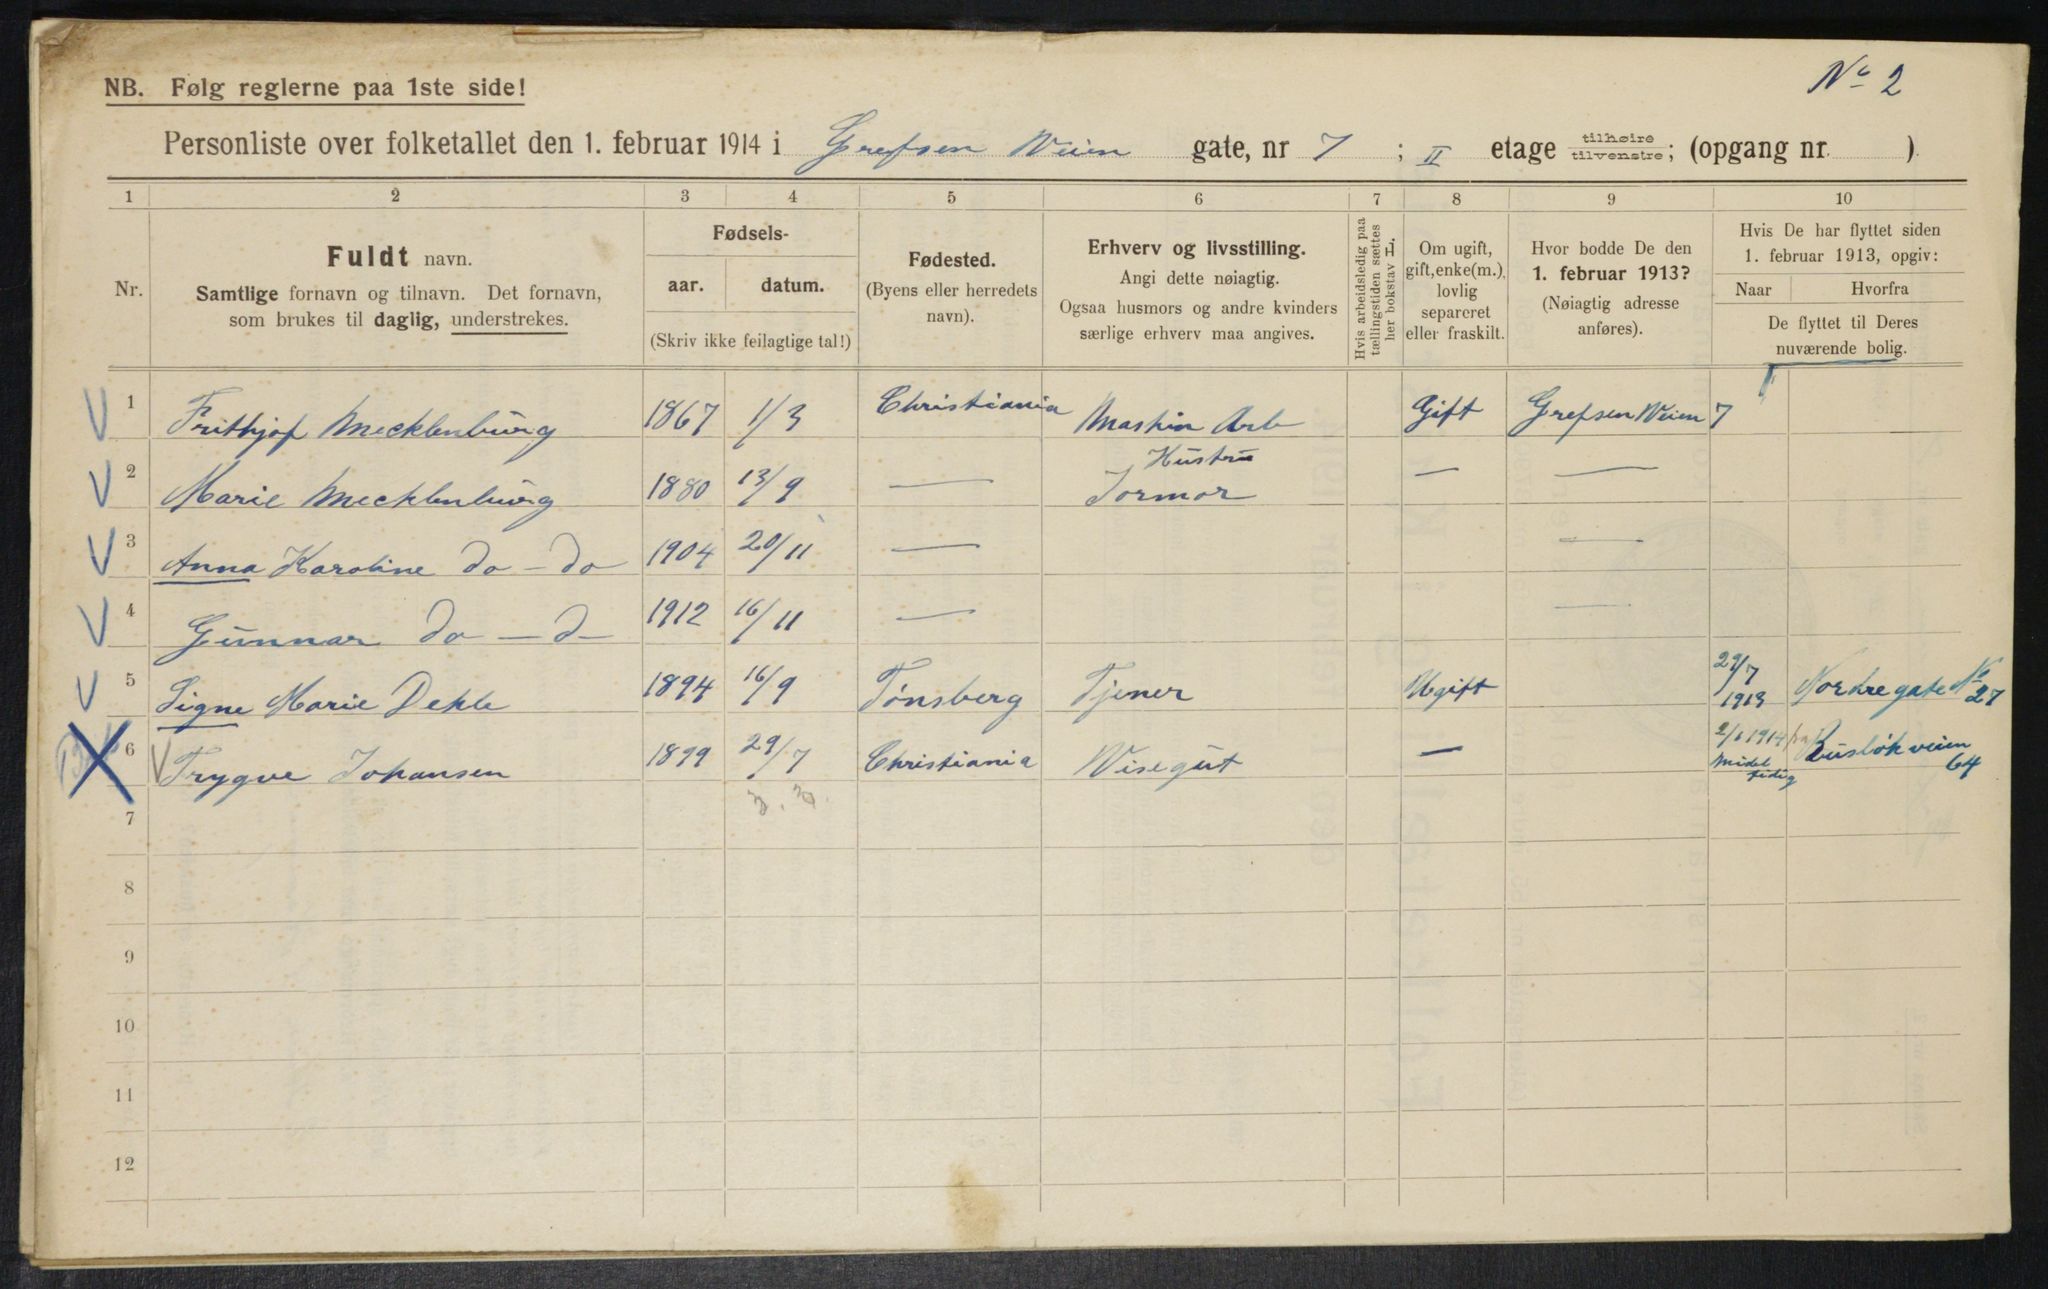 No 2
NB. Følg reglerne paa 1ste side!
Personliste over folketallet den 1. februar 1914 i Grefsen Veien gate, nr 7 ; II etage tilhøire tilvenstre; (opgang nr. )
1 2 3 4 5 6 7 8 9 10
Nr.
Fuldt navn.
Samtlige fornavn og tilnavn. Det fornavn,
som brukes til daglig, understrekes.
Fødsels-
aar. datum.
(Skriv ikke feilagtige tal!)
Fødested.
(Byens eller herredets
navn).
Erhverv og livsstilling.
Angi dette nøiagtig.
Ogsaa husmors og andre kvinders
særlige erhverv maa angives.
Hvis arbeidsledig paa
tællingstiden sættes
her bokstav L.
Om ugift,
gift, enke(m.),
lovlig
separeret
eller fraskilt.
Hvor bodde De den
1. februar 1913?
(Nøiagtig adresse
anføres).
Hvis De har flyttet siden
1. februar 1913, opgiv:
Naar Hvorfra
De flyttet til Deres
nuværende bolig.
1 Frithjof Mecklenburg 1867 1/3 Christiania Maskin Arb Gift Grefsen Veien 7
2 Marie Mecklenburg 1880 13/9 — Hustru — —
Jormor
3 Anna Karoline do - do 1904 20/11 — —
4 Gunnar do - d- 1912 16/11 — —
5 Signe Marie Dehle 1894 16/9 Tønsberg Tjener Ugift 29/7 1913 Nordregate No 27
6 Trygve Johansen 1899 29/7 Christiania Visegut — 2/1 1914 fra Rusløkveien 64
Midl
tidig
7
8
9
10
11
12